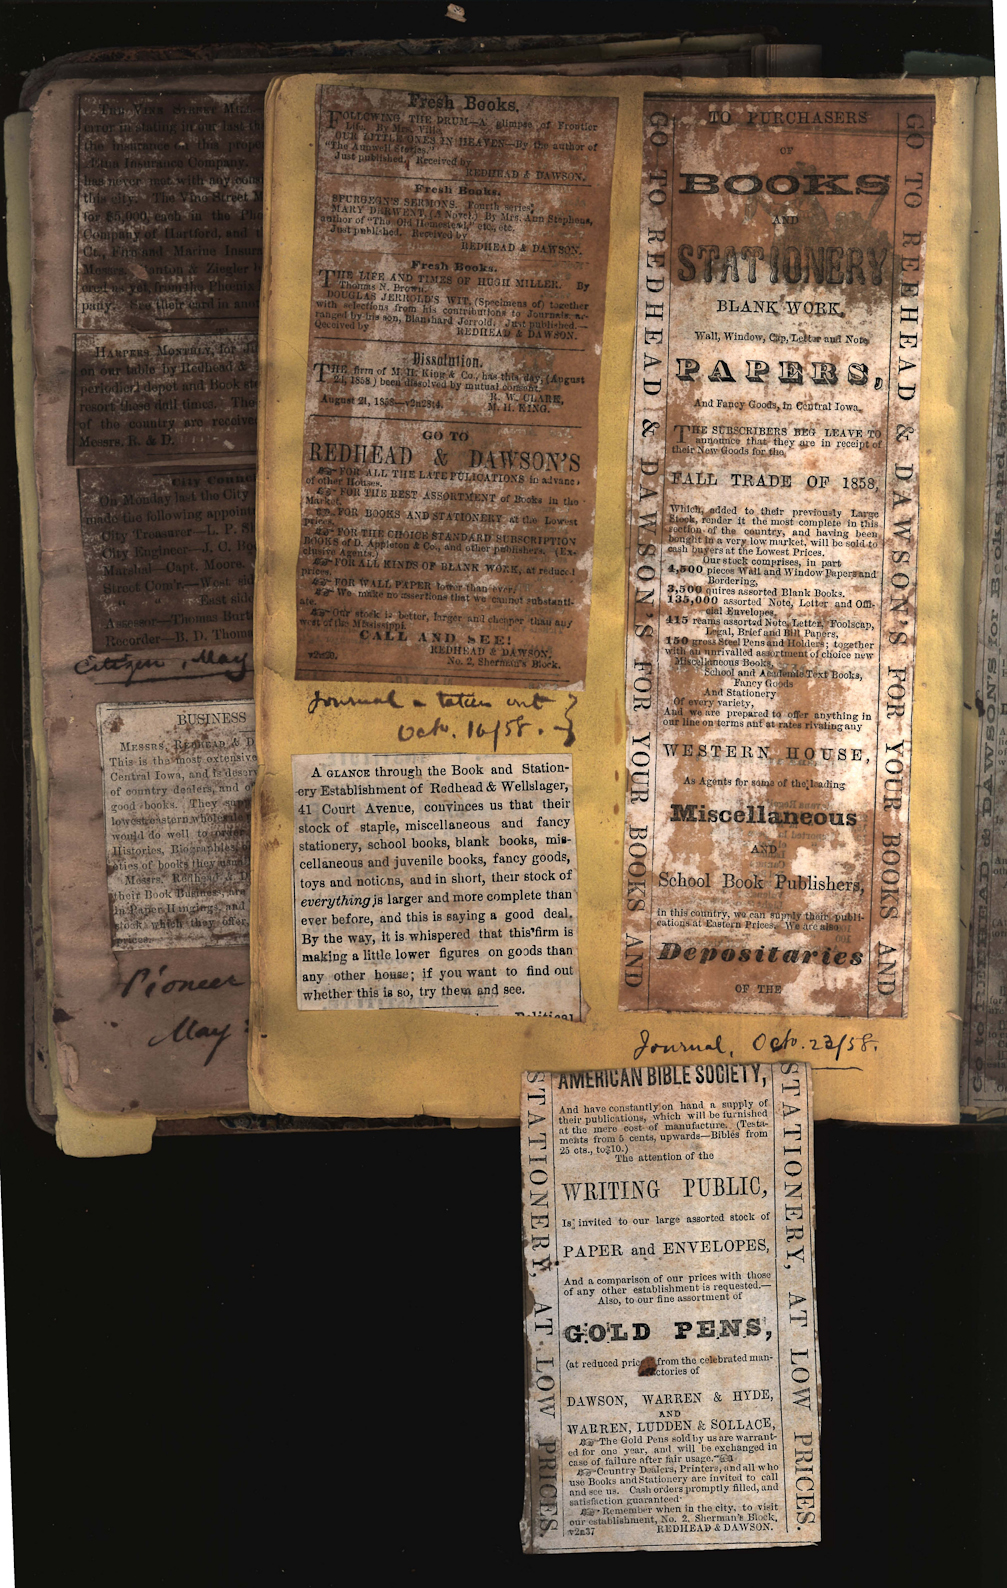 THE VINE STREET
error in stating in our last th
the insurance on this prope
Etna Insurance Company.
has never met with any
this city. The Vine Street M
for $5,000, each in the Pho
Company of Hartford, and t
Ct., Fire and Marine Insur
Messrs. Hanton & Ziegler
ored as yet from the Phoenix
pany. See their card in ano
HARPERS MONTHLY, for JU
on our table by Redhead &
periodical depot and Book sto
resort these dull times. The
of the country are receive
Messrs. R. & D.
City Counc
On Monday last the City
made the following appoint
City Treasurer—L. P. S
City Engineer—J. C. Bo
Marshal—Capt. Moore.
Street Com'r.—West sid
" " East side
Assessor—Thomas Burt
Recorder—B. D. Thoma
Citizen, May
BUSINESS
MESSRS. REDHEAD & D
This is the most extensive
Central Iowa, and is deserv
of country dealers, and o
good books. They sup
lowest eastern wholesale
would do well to order
Histories, Biographies,
eties of books they
Messrs. Redhead & D
their Book Business, are
in Paper Hangings, and
stock which they offer,
prices.
Pioneer
May
Fresh Books.
FOLLOWING THE DRUM—A glimpse of Frontier
Life. By Mrs. Ville
OUR LITTLE ONES IN HEAVEN—By the author of
"The Aimwell Stories."
Just published. Received by
REDHEAD & DAWSON.
Fresh Books.
SPURGEON'S SERMONS. Fourth series;
MARY DERWENT, (A Novel.) By Mrs. Ann Stephens,
author of "The Old Homestead," etc, etc.
Just published. Received by
REDHEAD & DAWSON.
Fresh Books.
THE LIFE AND TIMES OF HUGH MILLER. By
Thomas N. Brown.
DOUGLAS JERROLD'S WIT, (Specimens of) together
with selections from his contributions to Journals ar-
ranged by his son, Blanshard Jerrold. Just published.—
Qeceived by REDHEAD & DAWSON.
Dissolution.
THE firm of M. H. King & Co., has this day, (August
2d, 1858) been dissolved by mutual consent.
R. W. CLARK,
August 21, 1858—v2n28t4. M. H. KING.
GO TO
REDHEAD & DAWSON'S
FOR ALL THE LATE PULICATIONS in advance
of other Houses.
FOR THE BEST ASSORTMENT of Books in the
Market.
FOR BOOKS AND STATIONERY at the Lowest
prices.
FOR THE CHOICE STANDARD SUBSCRIPTION
BOOKS of D. Appleton & Co., and other publishers. (Ex-
clusive Agents.)
FOR ALL KINDS OF BLANK WORK, at reduced
prices.
FOR WALL PAPER lower than ever.
We make no assertions that we cannot substanti-
ate.
Our stock is better, larger and cheaper than any
west of the Mississippi.
CALL AND SEE!
REDHEAD & DAWSON,
v2n20. No. 2, Sherman's Block.
Journal - taken out
Octo. 16/58.
A GLANCE through the Book and Station-
ery Establishment of Redhead & Wellslager,
41 Court Avenue, convinces us that their
stock of staple, miscellaneous and fancy
stationery, school books, blank books, mis-
cellaneous and juvenile books, fancy goods,
toys and notions, and in short, their stock of
everything is larger and more complete than
ever before, and this is saying a good deal.
By the way, it is whispered that this firm is
making a little lower figures on goods than
any other house; if you want to find out
whether this is so, try them and see.
Political
GO TO REDHEAD & DAWSON'S FOR YOUR BOOKS AND
TO PURCHASERS
OF
BOOKS
AND
STATIONERY
BLANK WORK,
Wall, Window, Cap, Letter and Note
PAPERS,
And Fancy Goods, in Central Iowa.
THE SUBSCRIBERS BEG LEAVE TO
announce that they are in receipt of
their New Goods for the
FALL TRADE OF 1858,
Which, added to their previously Large
Stock, render it the most complete in this
section of the country, and having been
bought in a very low market, will be sold to
cash buyers at the Lowest Prices.
Our stock comprises, in part
4,500 pieces Wall and Window Papers and
Bordering,
3,500 quires assorted Blank Books.
135,000 assorted Note, Letter and Offi-
cial Envelopes,
415 reams assorted Note, Letter, Foolscap,
Legal, Brief and Bill Papers,
150 gross Steel Pens and Holders; together
with an unrivalled assortment of choice new
Miscellaneous Books,
School and Academic Text Books,
Fancy Goods
And Stationery
Of every variety,
And we are prepared to offer anything in
our line on terms anf at rates rivaling any
WESTERN HOUSE,
As Agents for some of the leading
Miscellaneous
AND
School Book Publishers,
in this country, we can supply their publi-
cations at Eastern Prices. We are also
Depositaries
OF THE
GO TO REDHEAD & DAWSON'S FOR YOUR BOOKS AND
Journal, Octo. 23/58.
STATIONERY, AT LOW PRICES.
AMERICAN BIBLE SOCIETY,
And have constantly on hand a supply of
their publications, which will be furnished
at the mere cost of manufacture. (Testa-
ments from 5 cents, upwards—Bibles from
25 cts., to $10.)
The attention of the
WRITING PUBLIC,
Is invited to our large assorted stock of
PAPER and ENVELOPES,
And a comparison of our prices with those
of any other establishment is requested.—
Also, to our fine assortment of
GOLD PENS,
(at reduced prices from the celebrated man-
ufactories of
DAWSON, WARREN & HYDE,
AND
WARREN, LUDDEN & SOLLACE,
The Gold Pens sold by us are warrant-
ed for one year, and will be exchanged in
case of failure after fair usage.
Country Dealers, Printers, and all who
use Books and Stationery are invited to call
and see us. Cash orders promptly filled, and
satisfaction guaranteed
Remember when in the city, to visit
our establishment, No. 2, Sherman's Block,
v2n37 REDHEAD & DAWSON.
STATIONERY, AT LOW PRICES.